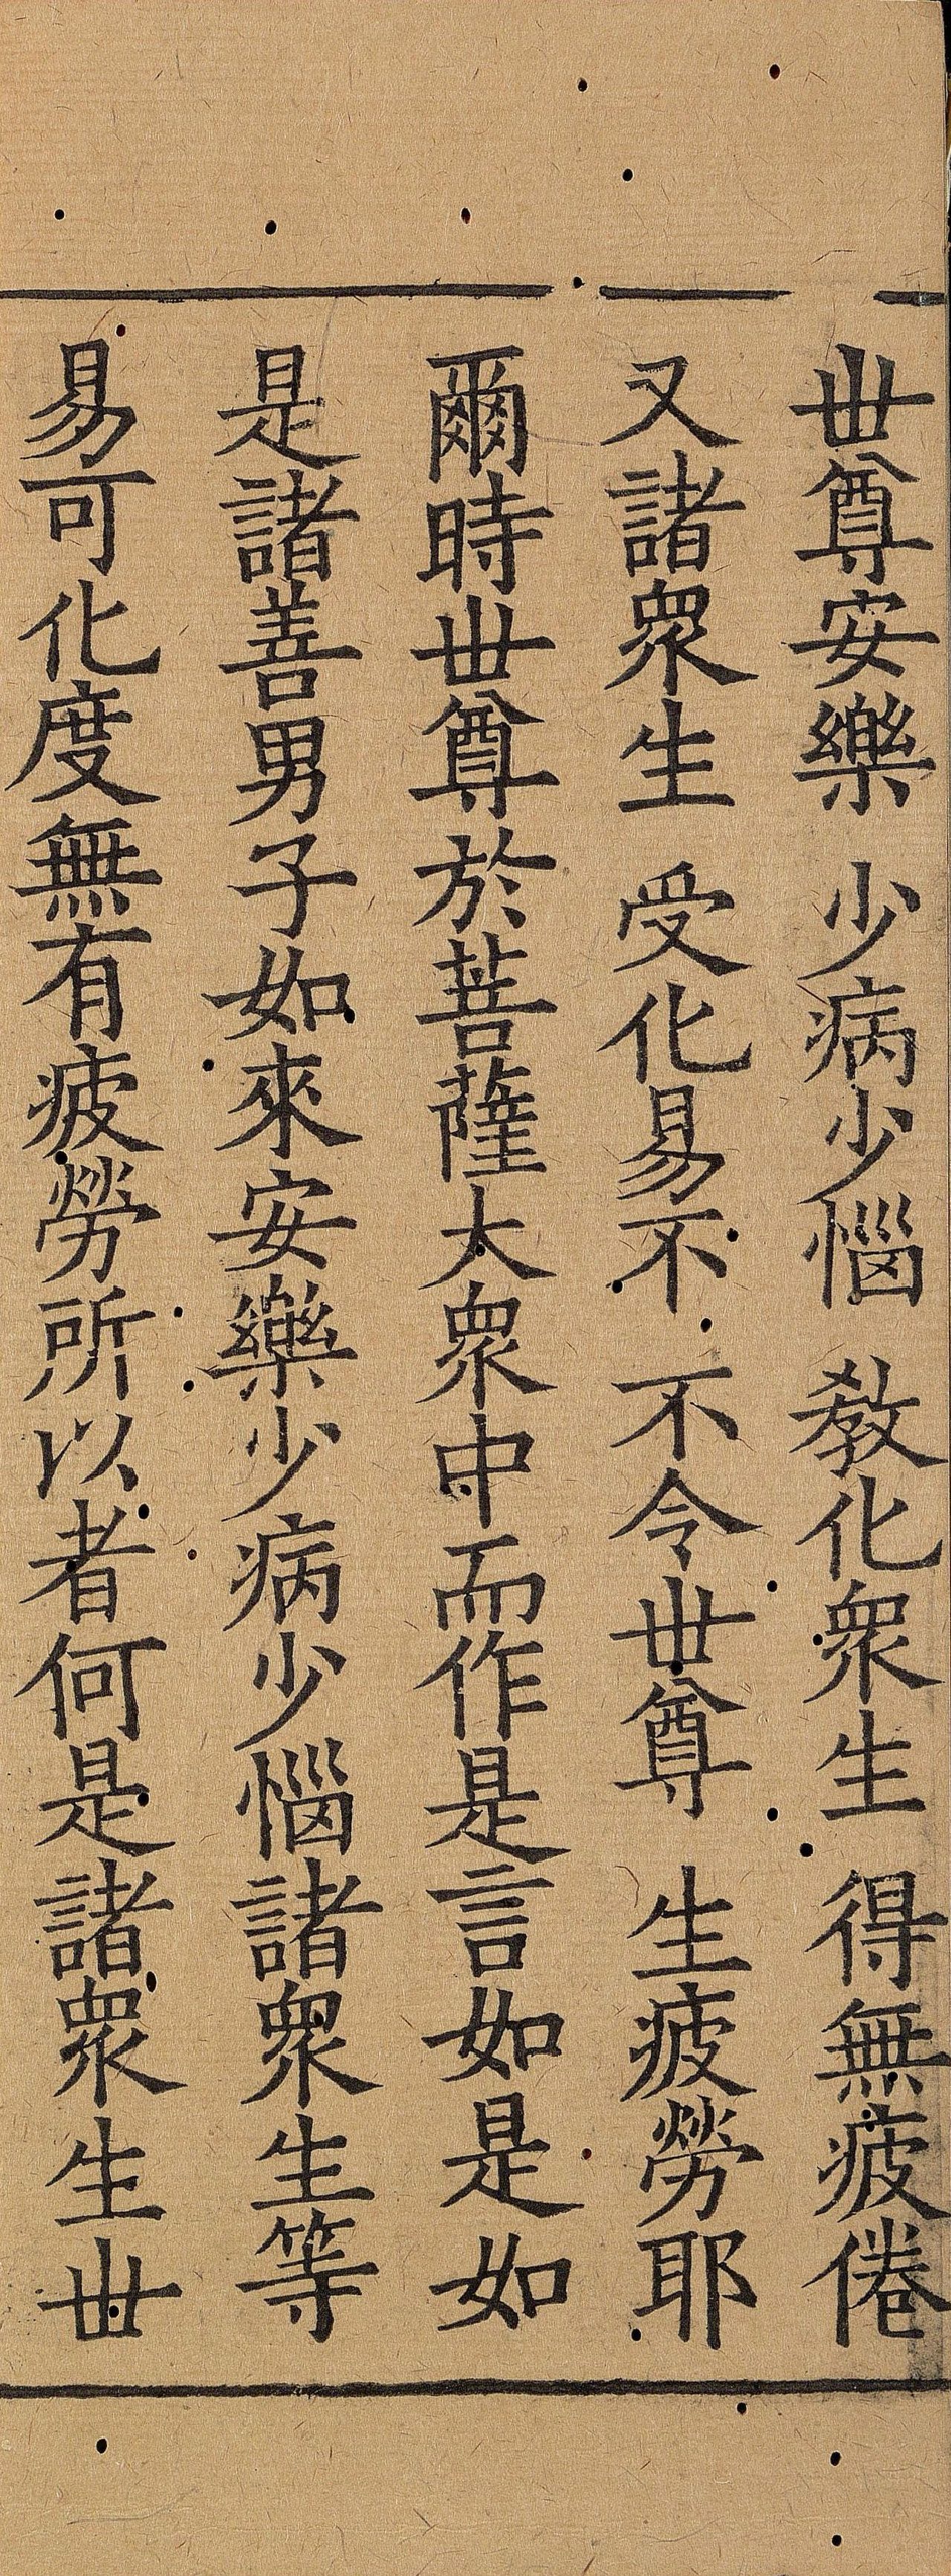 世尊安樂 少病少惱 教化衆生 得無疲倦
又諸衆生 受化易不 不令世尊 生疲勞耶
爾時世尊於菩薩大衆中而作是言如是如
是諸善男子如來安樂少病少惱諸衆生等
易可化度無有疲勞所以者何是諸衆生世